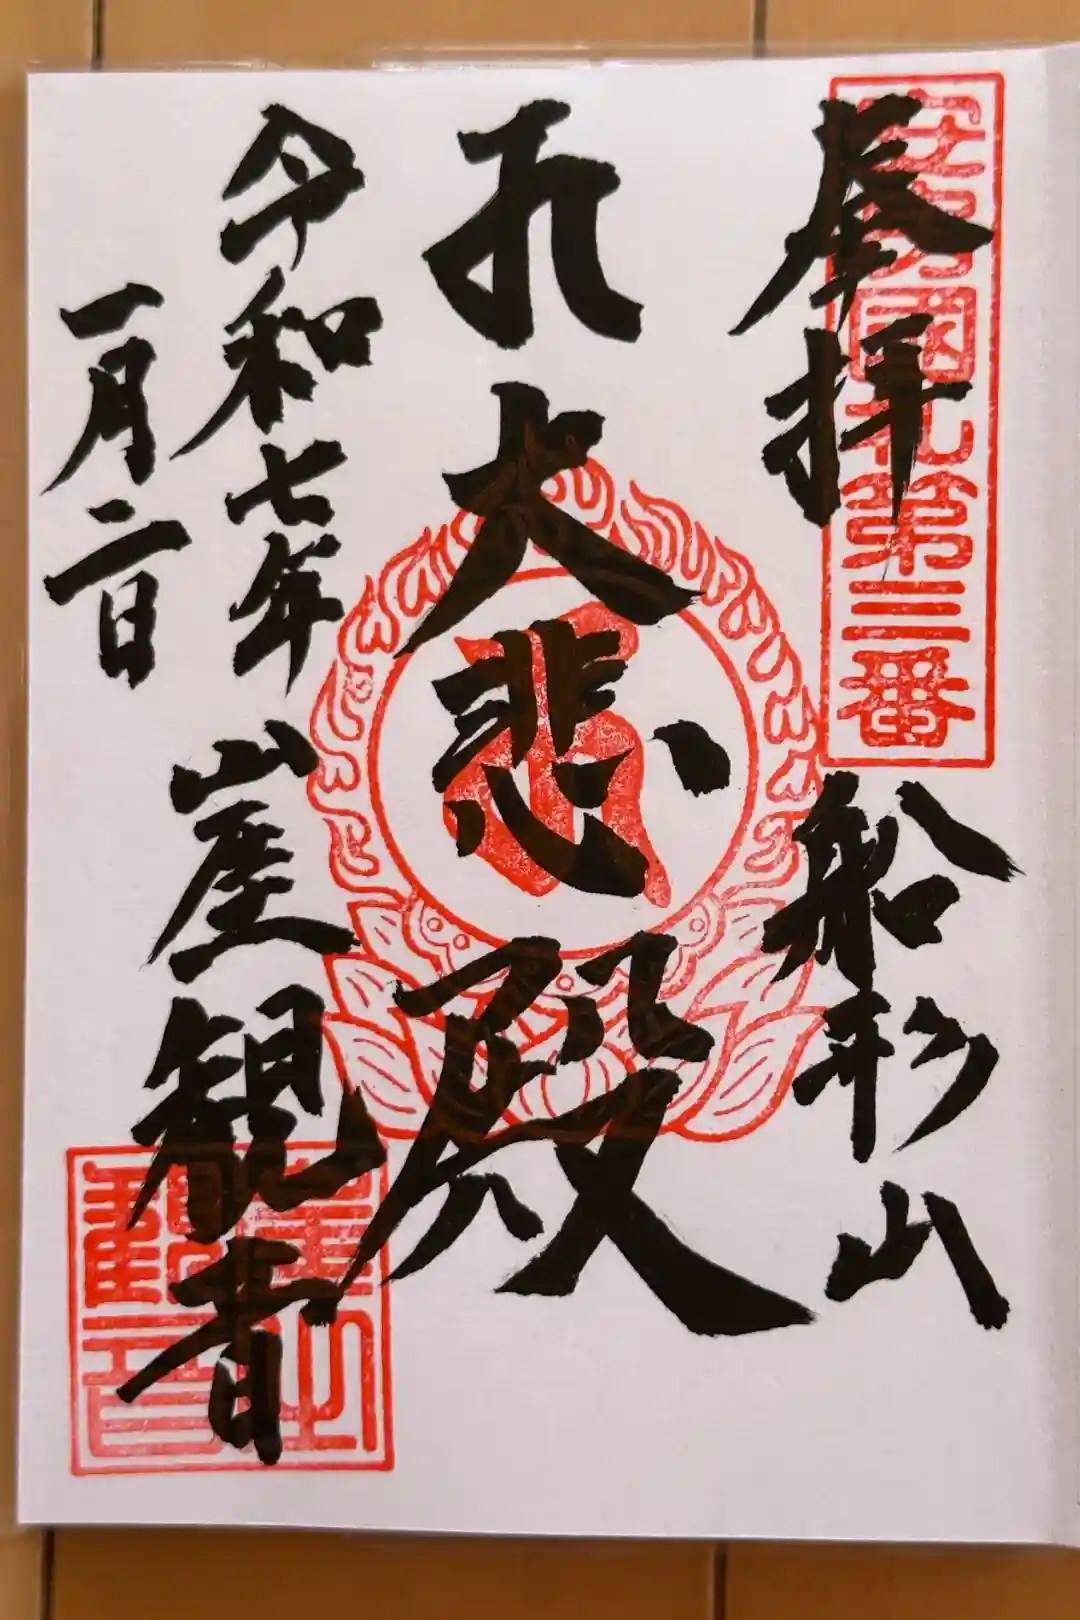 奉拝
安房國札第三番
船形山
大悲殿
令和七年
一月二日
崖観音